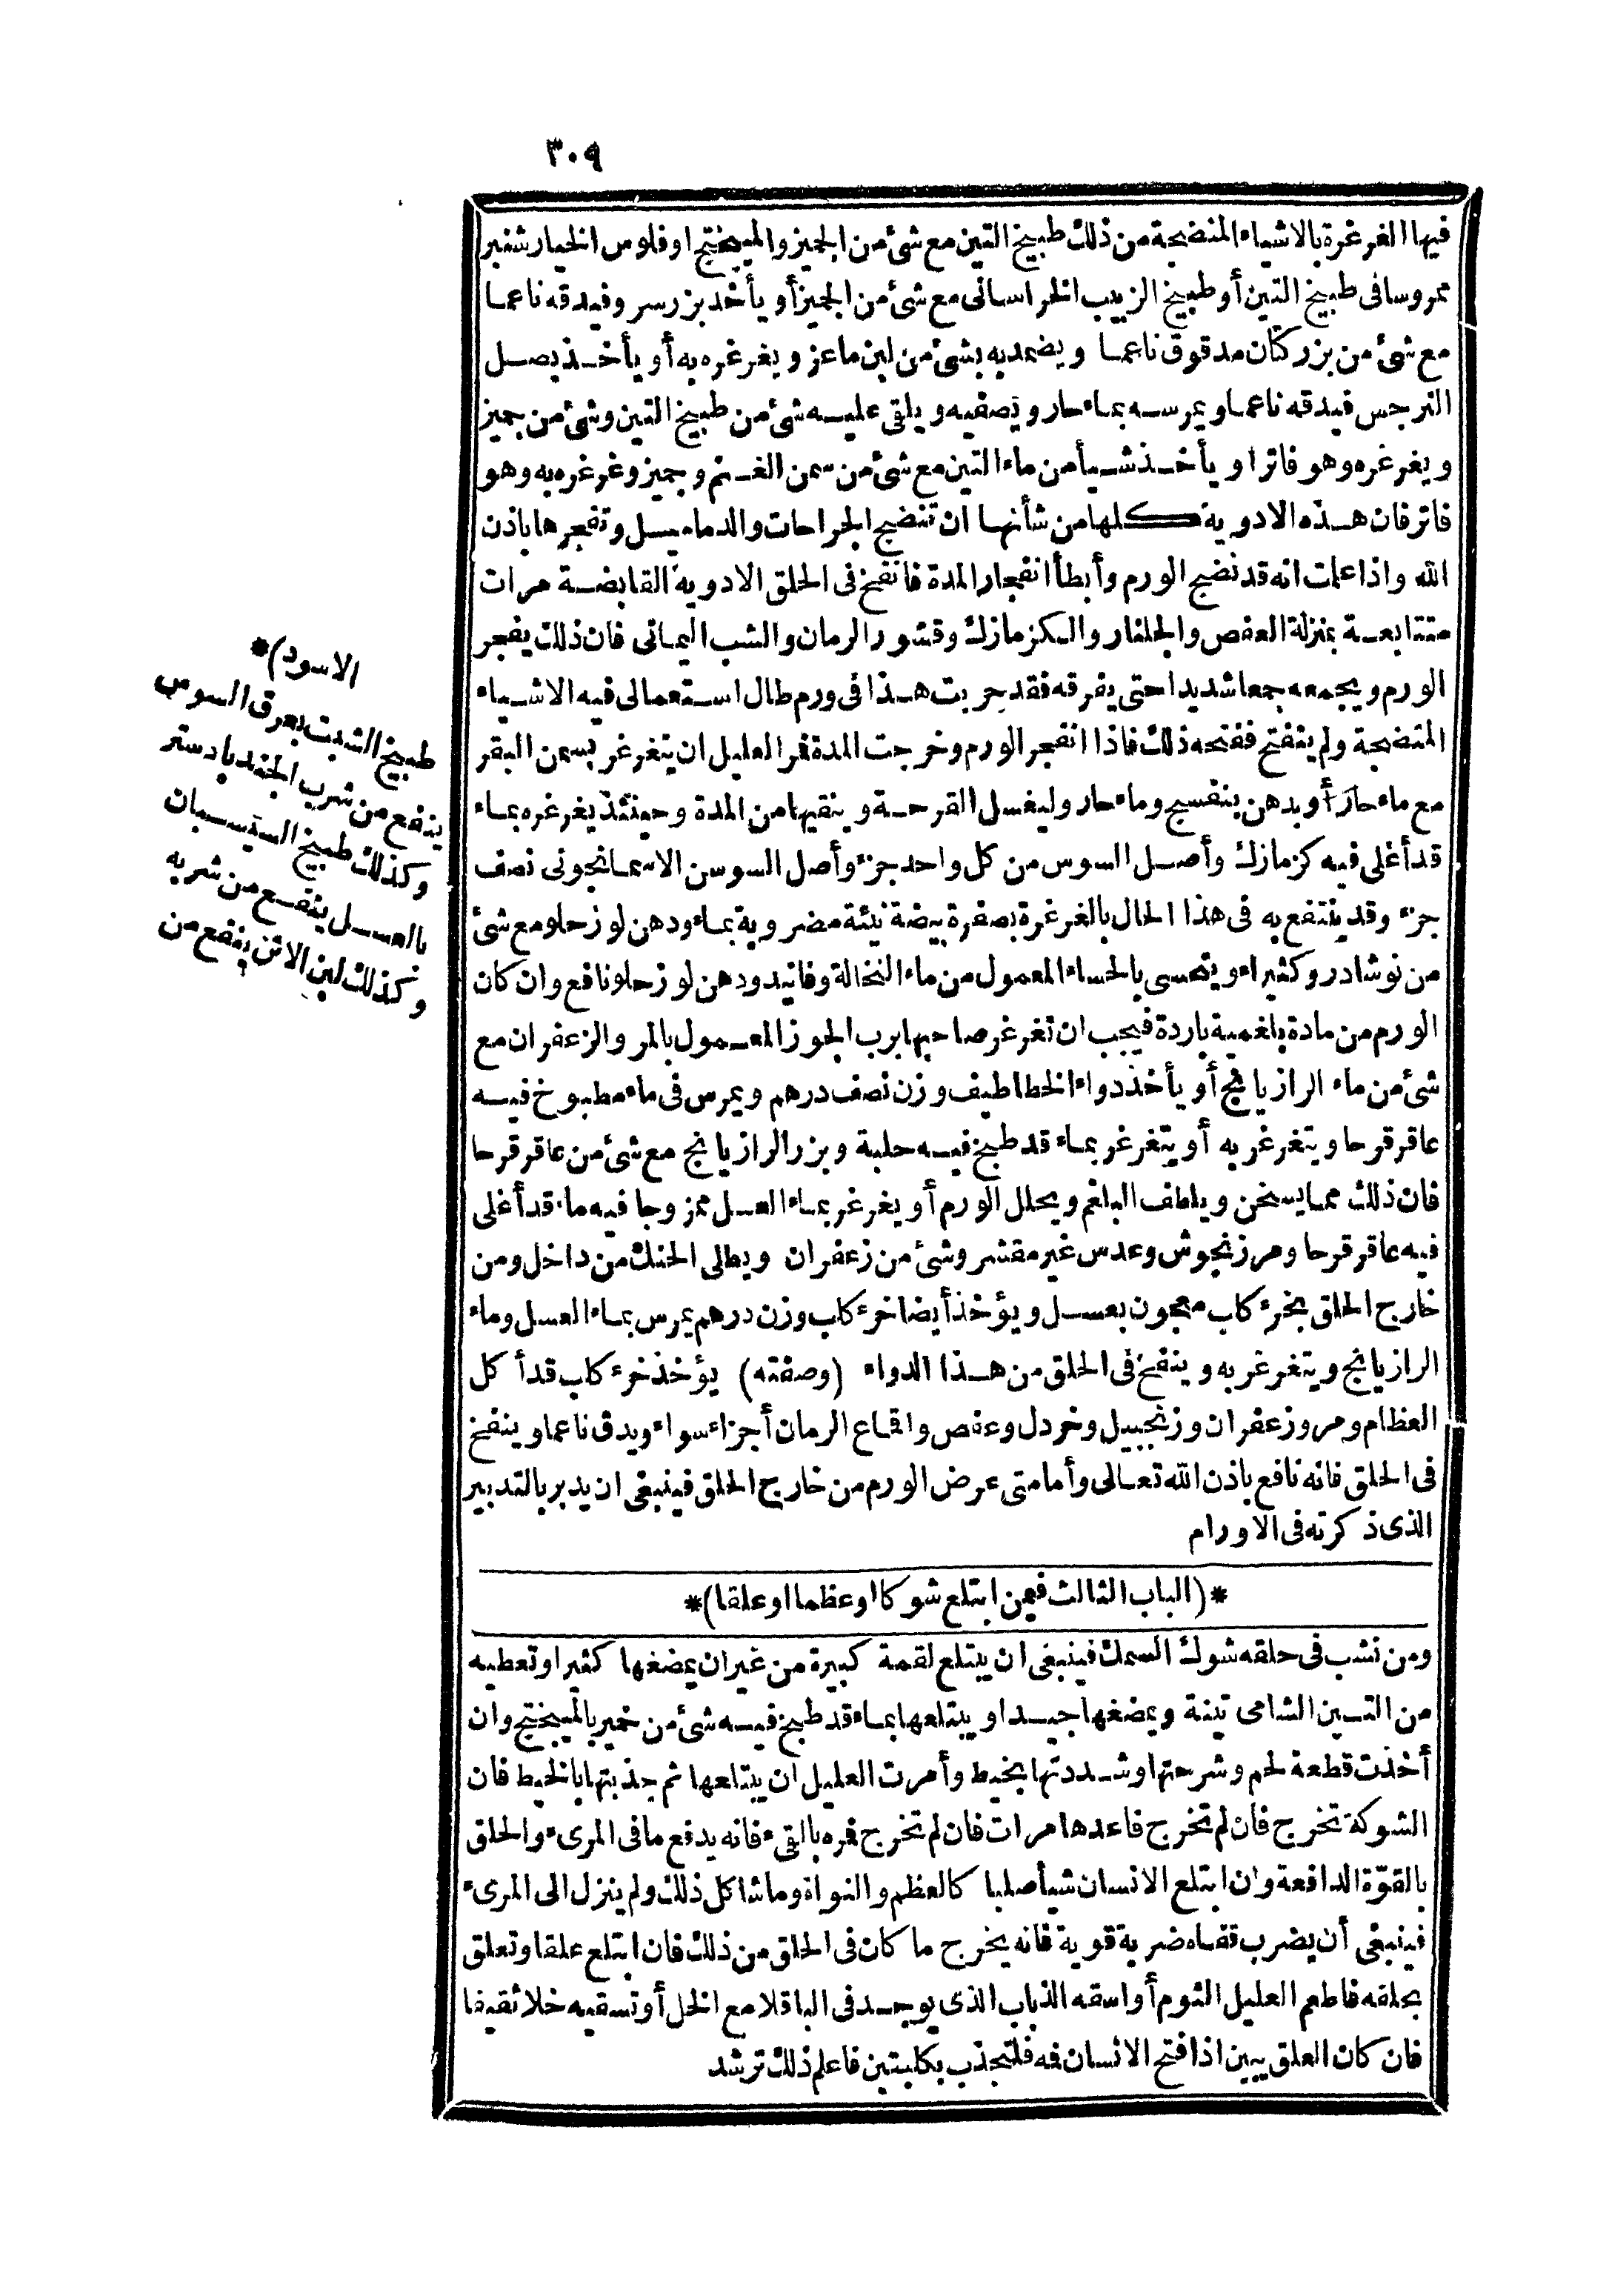 ٣٠٩
فيها الغرغرة بالاشياء المنضجة من ذلك طبيخ التين مع شئ من الجميز والميبختج او فلوس الخيارشنبر
ممروسا فى طبيخ التين أو طبيخ الزبيب الخراسانى مع شئ من الجميز أو يأخذ بزر سرو فيدقه ناعما
مع شئ من بزر كتان مدقوق ناعما ويضمد به بشئ من لبن ماعز ويغرغره به أو يأخذ بصل
النرجس فيدقه ناعما ويمرسه بماء حار ويصفيه ويلقى عليه شئ من طبيخ التين وشئ من جميز
ويغرغره وهو فاتر او يأخذ شيأ من ماء التين مع شئ من سمن الغنم وجميز وغرغره به وهو
فاتر فان هذه الادوية كلها من شأنها ان تنضج الجراحات والدماميل وتفجرها باذن
الله واذا علمت انه قد نضج الورم وأبطأ انفجار المدة فانفخ فى الحلق الادوية القابضة مرات
متتابعة بمنزلة العفص والجلنار والكزمازك وقشور الرمان والشب اليمانى فان ذلك يفجر
الورم ويجمعه جمعا شديدا حتى يفرقه فقد جربت هذا فى ورم طال استعمالى فيه الاشياء
المنضجة ولم ينفتح ففتحه ذلك فاذا انفجر الورم وخرجت المدة فمر العليل ان يتغرغر بسمن البقر
مع ماء حار أو بدهن بنفسج وماء حار وليغسل القرحة وينقيها من المدة وحينئذ يغرغره بماء
قد أغلى فيه كزمازك وأصل السوس من كل واحد جزء وأصل السوسن الاسمانجونى نصف
جزء وقد ينتفع به فى هذا الحال بالغرغرة بصفرة بيضة نيئة مضروبة بماء ودهن لوز حلو مع شئ
من نوشادر وكثيراء ويتحسى بالحساء المعمول من ماء النخالة وفانيد ودهن لوز حلو نافع وان كان
الورم من مادة بلغمية باردة فيجب ان تغرغر صاحبها برب الجوز المعمول بالمر والزعفران مع
شئ من ماء الرازيانج أو يأخذ دواء الخطاطيف وزن نصف درهم ويمرس فى ماء مطبوخ فيه
عاقرقرحا ويتغرغر به أو يتغرغر بماء قد طبخ فيه حلبة وبزر الرازيانج مع شئ من عاقرقرحا
فان ذلك مما يسخن ويلطف البلغم ويحلل الورم أو يغرغر بماء العسل ممزوجا فيه ماء قد أغلى
فيه عاقرقرحا ومرزنجوش وعدس غير مقشر وشئ من زعفران ويطلى الحنك من داخل ومن
خارج الحلق بخرء كلب معجون بعسل ويؤخذ أيضا خرء كلب وزن درهم يمرس بماء العسل وماء
الرازيانج ويتغرغر به وينفخ فى الحلق من هذا الدواء (وصفته) يؤخذ خرء كلب قد أكل
العظام ومر وزعفران وزنجبيل وخردل وعفص واقماع الرمان أجزاء سواء ويدق ناعما وينفخ
فى الحلق فانه نافع باذن الله تعالى وأما متى عرض الورم من خارج الحلق فينبغى ان يدبر بالتدبير
الذى ذكرته فى الاورام
*(الباب الثالث فيمن ابتلع شوكا او عظما او علقا)*
ومن نشب فى حلقه شوك السمك فينبغى ان يبتلع لقمة كبيرة من غير ان يمضغها كثيرا وتعطيه
من التين الشامى تينة ويمضغها جيدا ويبتلعها بماء قد طبخ فيه شئ من خمير بالميبختج وان
أخذت قطعة لحم وشرحتها وشددتها بخيط وأمرت العليل ان يبتلعها ثم جذبتها بالخيط فان
الشوكة تخرج فان لم تخرج فاعدها مرات فان لم تخرج فمره بالقىء فانه يدفع ما فى المرىء والحلق
بالقوّة الدافعة وان ابتلع الانسان شيأ صلبا كالعظم والنواة وما شاكل ذلك ولم ينزل الى المرىء
فينبغى أن يضرب قفاه ضربة قوية فانه يخرج ما كان فى الحلق من ذلك فان ابتلع علقا وتعلق
بحلقه فاطعم العليل الثوم أو اسقه الذباب الذى يوجد فى الباقلا مع الخل أو تسقيه خلا ثقيفا
فان كان العلق يبين اذا فتح الانسان فمه فلتجذب بكلبتين فاعلم ذلك ترشد
الاسود)*
طبيخ الشبت بعرق السوس
ينفع من شرب الجندبادستر
وكذلك طبيخ السيسبان
بالعسل ينفع من شربه
وكذلك لبن الاتن ينفع من